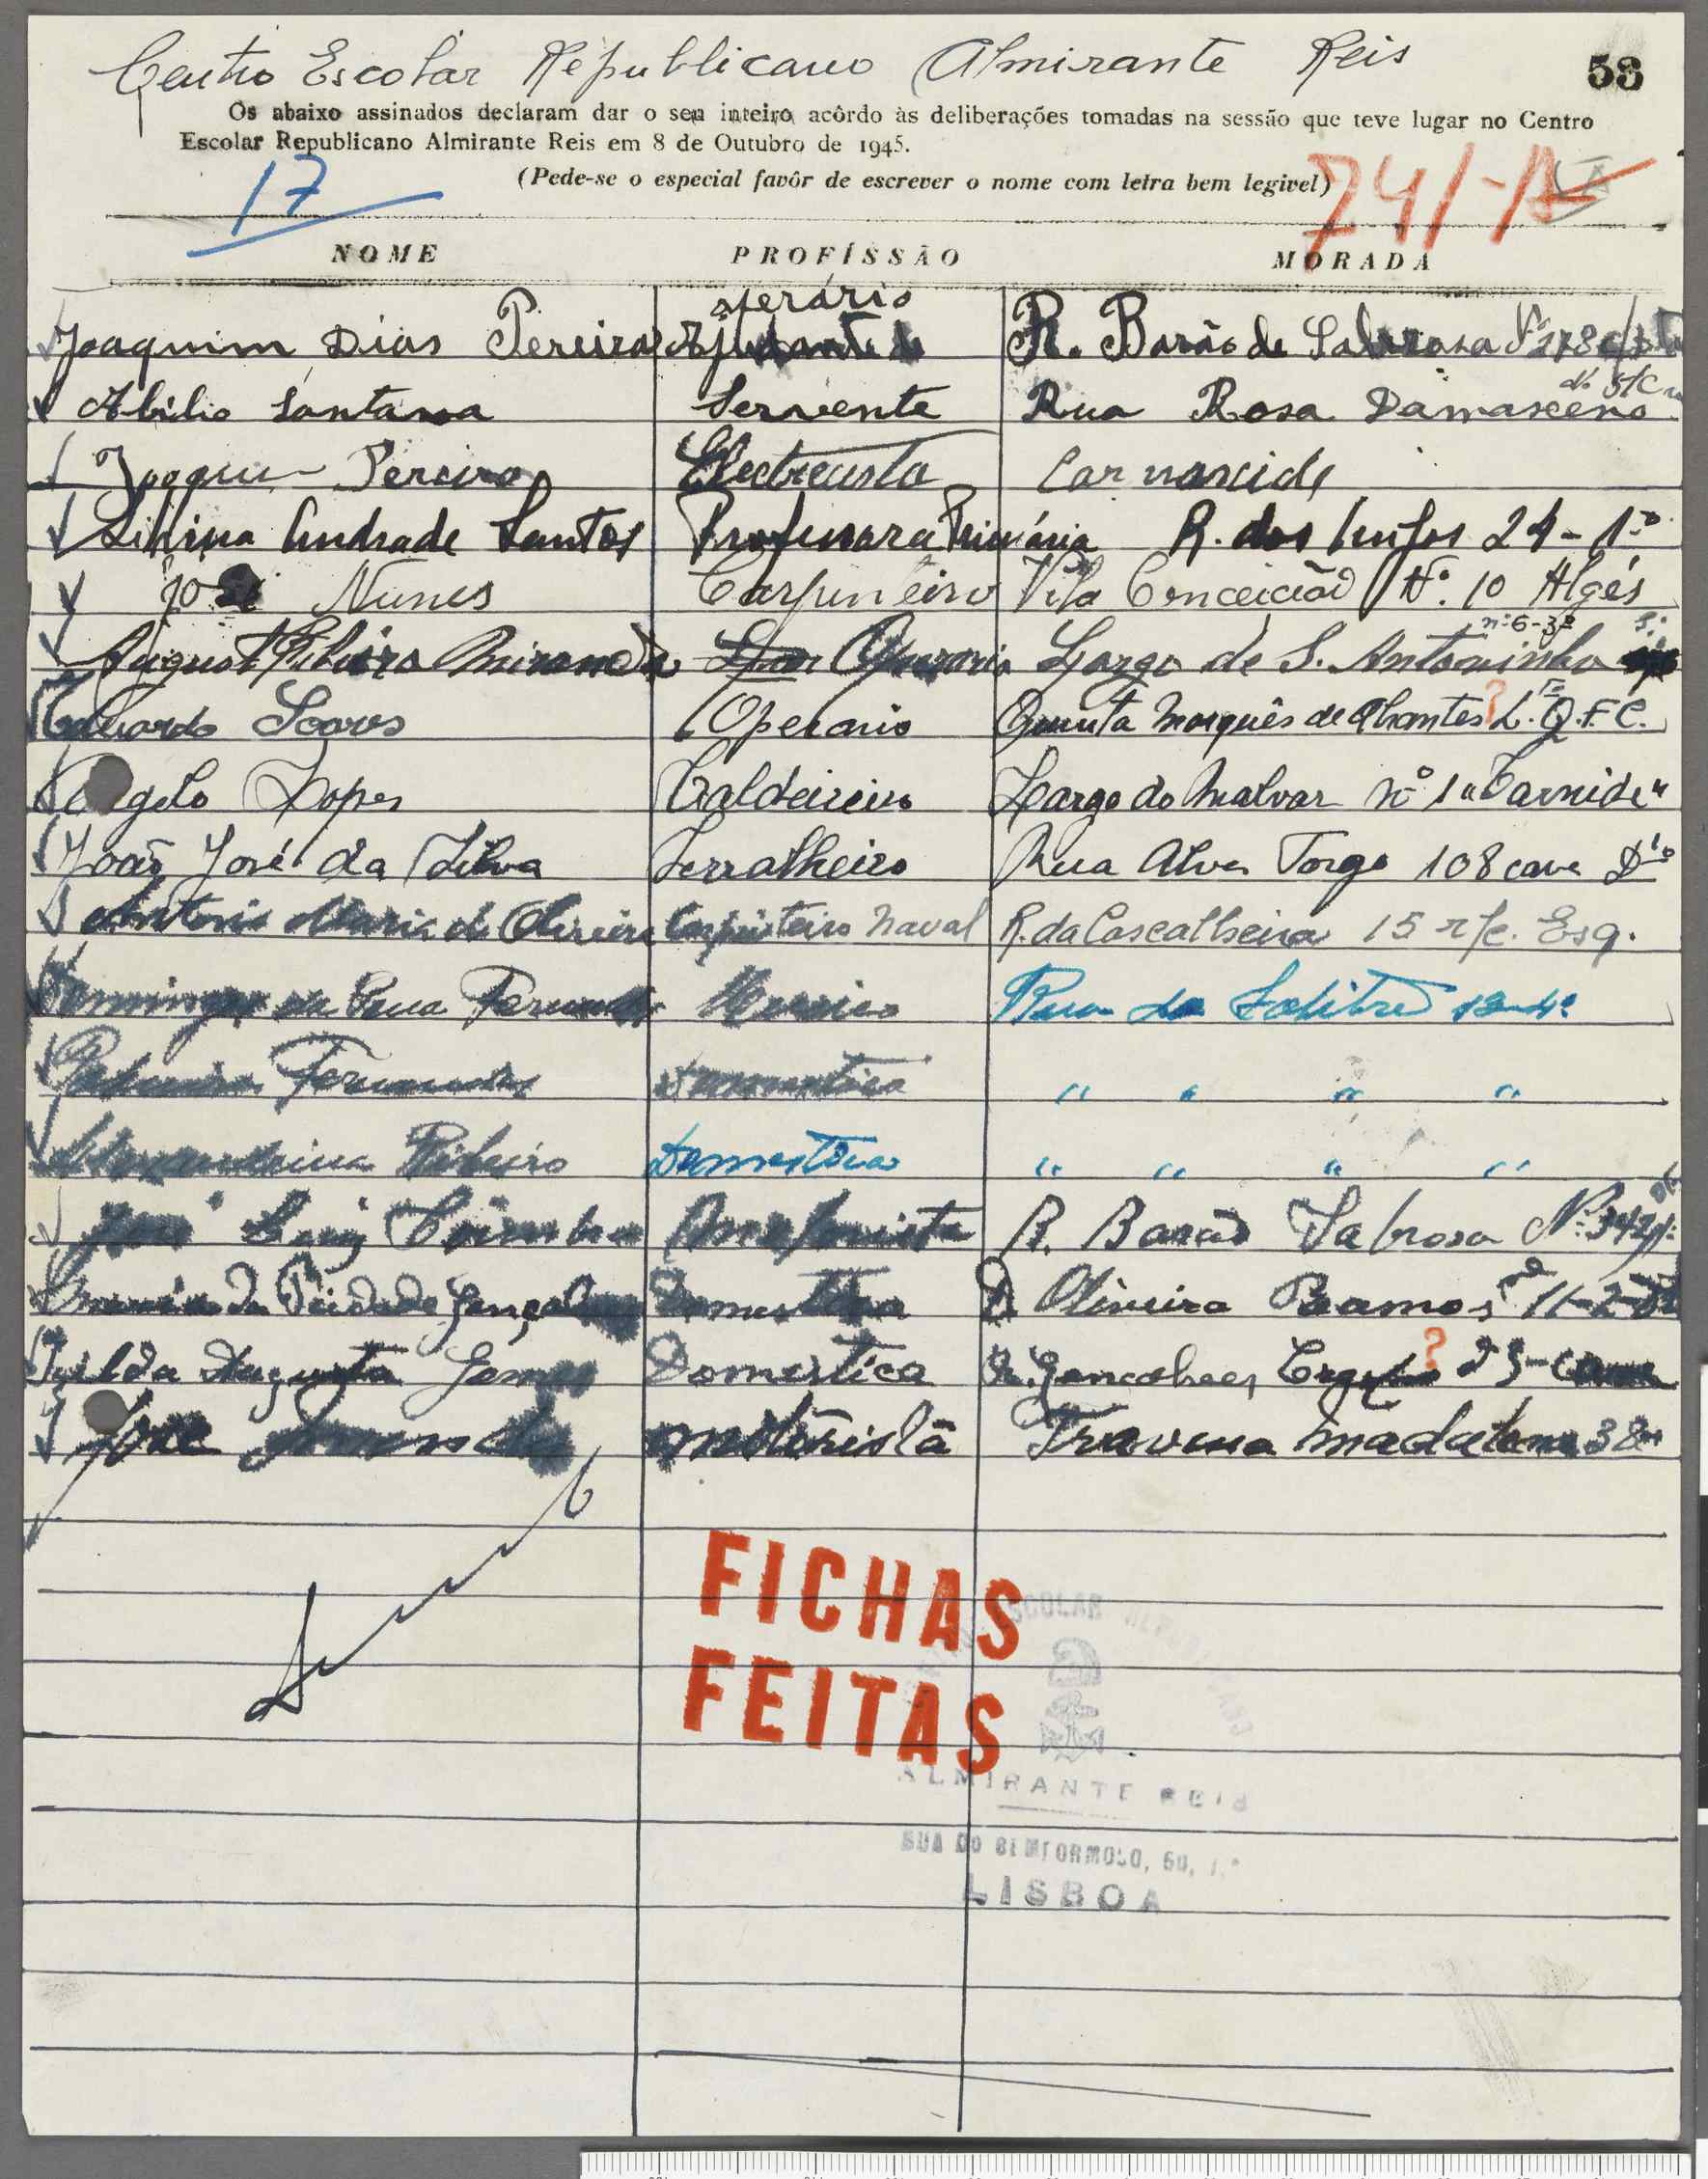 Centro Escolar Republicano Almirante Reis
53
Os abaixo assinados declaram dar o seu inteiro acôrdo às deliberações tomadas na sessão que teve lugar no Centro
Escolar Republicano Almirante Reis em 8 de Outubro de 1945.
(Pede-se o especial favôr de escrever o nome com letra bem legivel)
17
741-A
NOME PROFÍSSÃO MORADA
operário
Joaquim Dias Pereira Ajudante de R. Barão de Sabrosa Nº
Abilio Santana Servente Rua Rosa Damasceno
Joaquim Pereira Electrecista Carnaxide
Andrade Santos Professora Primária R. dos 24-1º
José Nunes Carpinteiro Vila Conceicião Nº. 10 Algés
nº 6-3º
August Ribeiro Miranda Operario Largo de S. Antoninho
Eduardo Soares Operario Quinta Marquês de Abrantes ? L. Q.F.C.
Angelo Lopes Caldeireiro Largo do Malvar nº 1 "Carnide"
João José da Silva Serralheiro Rua Alves Torgo 108 cave Dto
Antonio Maria de Oliveira Carpinteiro Naval R. da Cascalheira 15 r/c. Esq.
Domingos da Fernandes Rua do Salitre 13-4º
Fernandes Domestica " " " "
Alexandrina Ribeiro Domestica " " " "
José Luiz Coimbra R. Barão Sabrosa Nº. 342
da Piedade Gonçalves Domestica R. Oliveira Ramos nº 11-2-
Augusta Gomes Domestica R. Goncalves ?
José motorista Travessa Madalena 38
FICHAS
FEITAS
ESCOLAR REPUBLICANO
ALMIRANTE REIS
RUA DO BEMFORMOSO, 50, 1.º
LISBOA